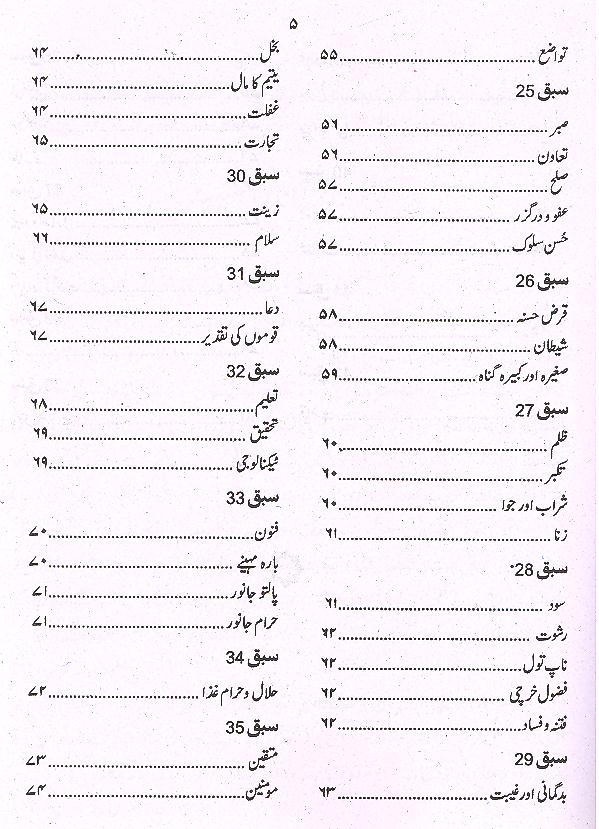 ۵
تواضع ........ ۵۵
سبق 25
صبر ........ ۵۶
تعاون ........ ۵۶
صلح ........ ۵۷
عفو و درگزر ........ ۵۷
حُسن سلوک ........ ۵۷
سبق 26
قرض حسنہ ........ ۵۸
شیطان ........ ۵۸
صغیرہ اور کبیرہ گناہ ........ ۵۹
سبق 27
ظلم ........ ۶۰
تکبر ........ ۶۰
شراب اور جوا ........ ۶۰
زنا ........ ۶۱
سبق 28
سود ........ ۶۱
رشوت ........ ۶۲
ناپ تول ........ ۶۲
فضول خرچی ........ ۶۲
فتنہ و فساد ........ ۶۲
سبق 29
بدگمانی اور غیبت ........ ۶۳
بخل ........ ۶۴
یتیم کا مال ........ ۶۴
غفلت ........ ۶۴
تجارت ........ ۶۵
سبق 30
زینت ........ ۶۵
سلام ........ ۶۶
سبق 31
دعا ........ ۶۷
قوموں کی تقدیر ........ ۶۷
سبق 32
تعلیم ........ ۶۸
تحقیق ........ ۶۹
ٹیکنالوجی ........ ۶۹
سبق 33
فنون ........ ۷۰
بارہ مہینے ........ ۷۰
پالتو جانور ........ ۷۱
حرام جانور ........ ۷۱
سبق 34
حلال و حرام غذا ........ ۷۲
سبق 35
متقین ........ ۷۳
مومنین ........ ۷۴